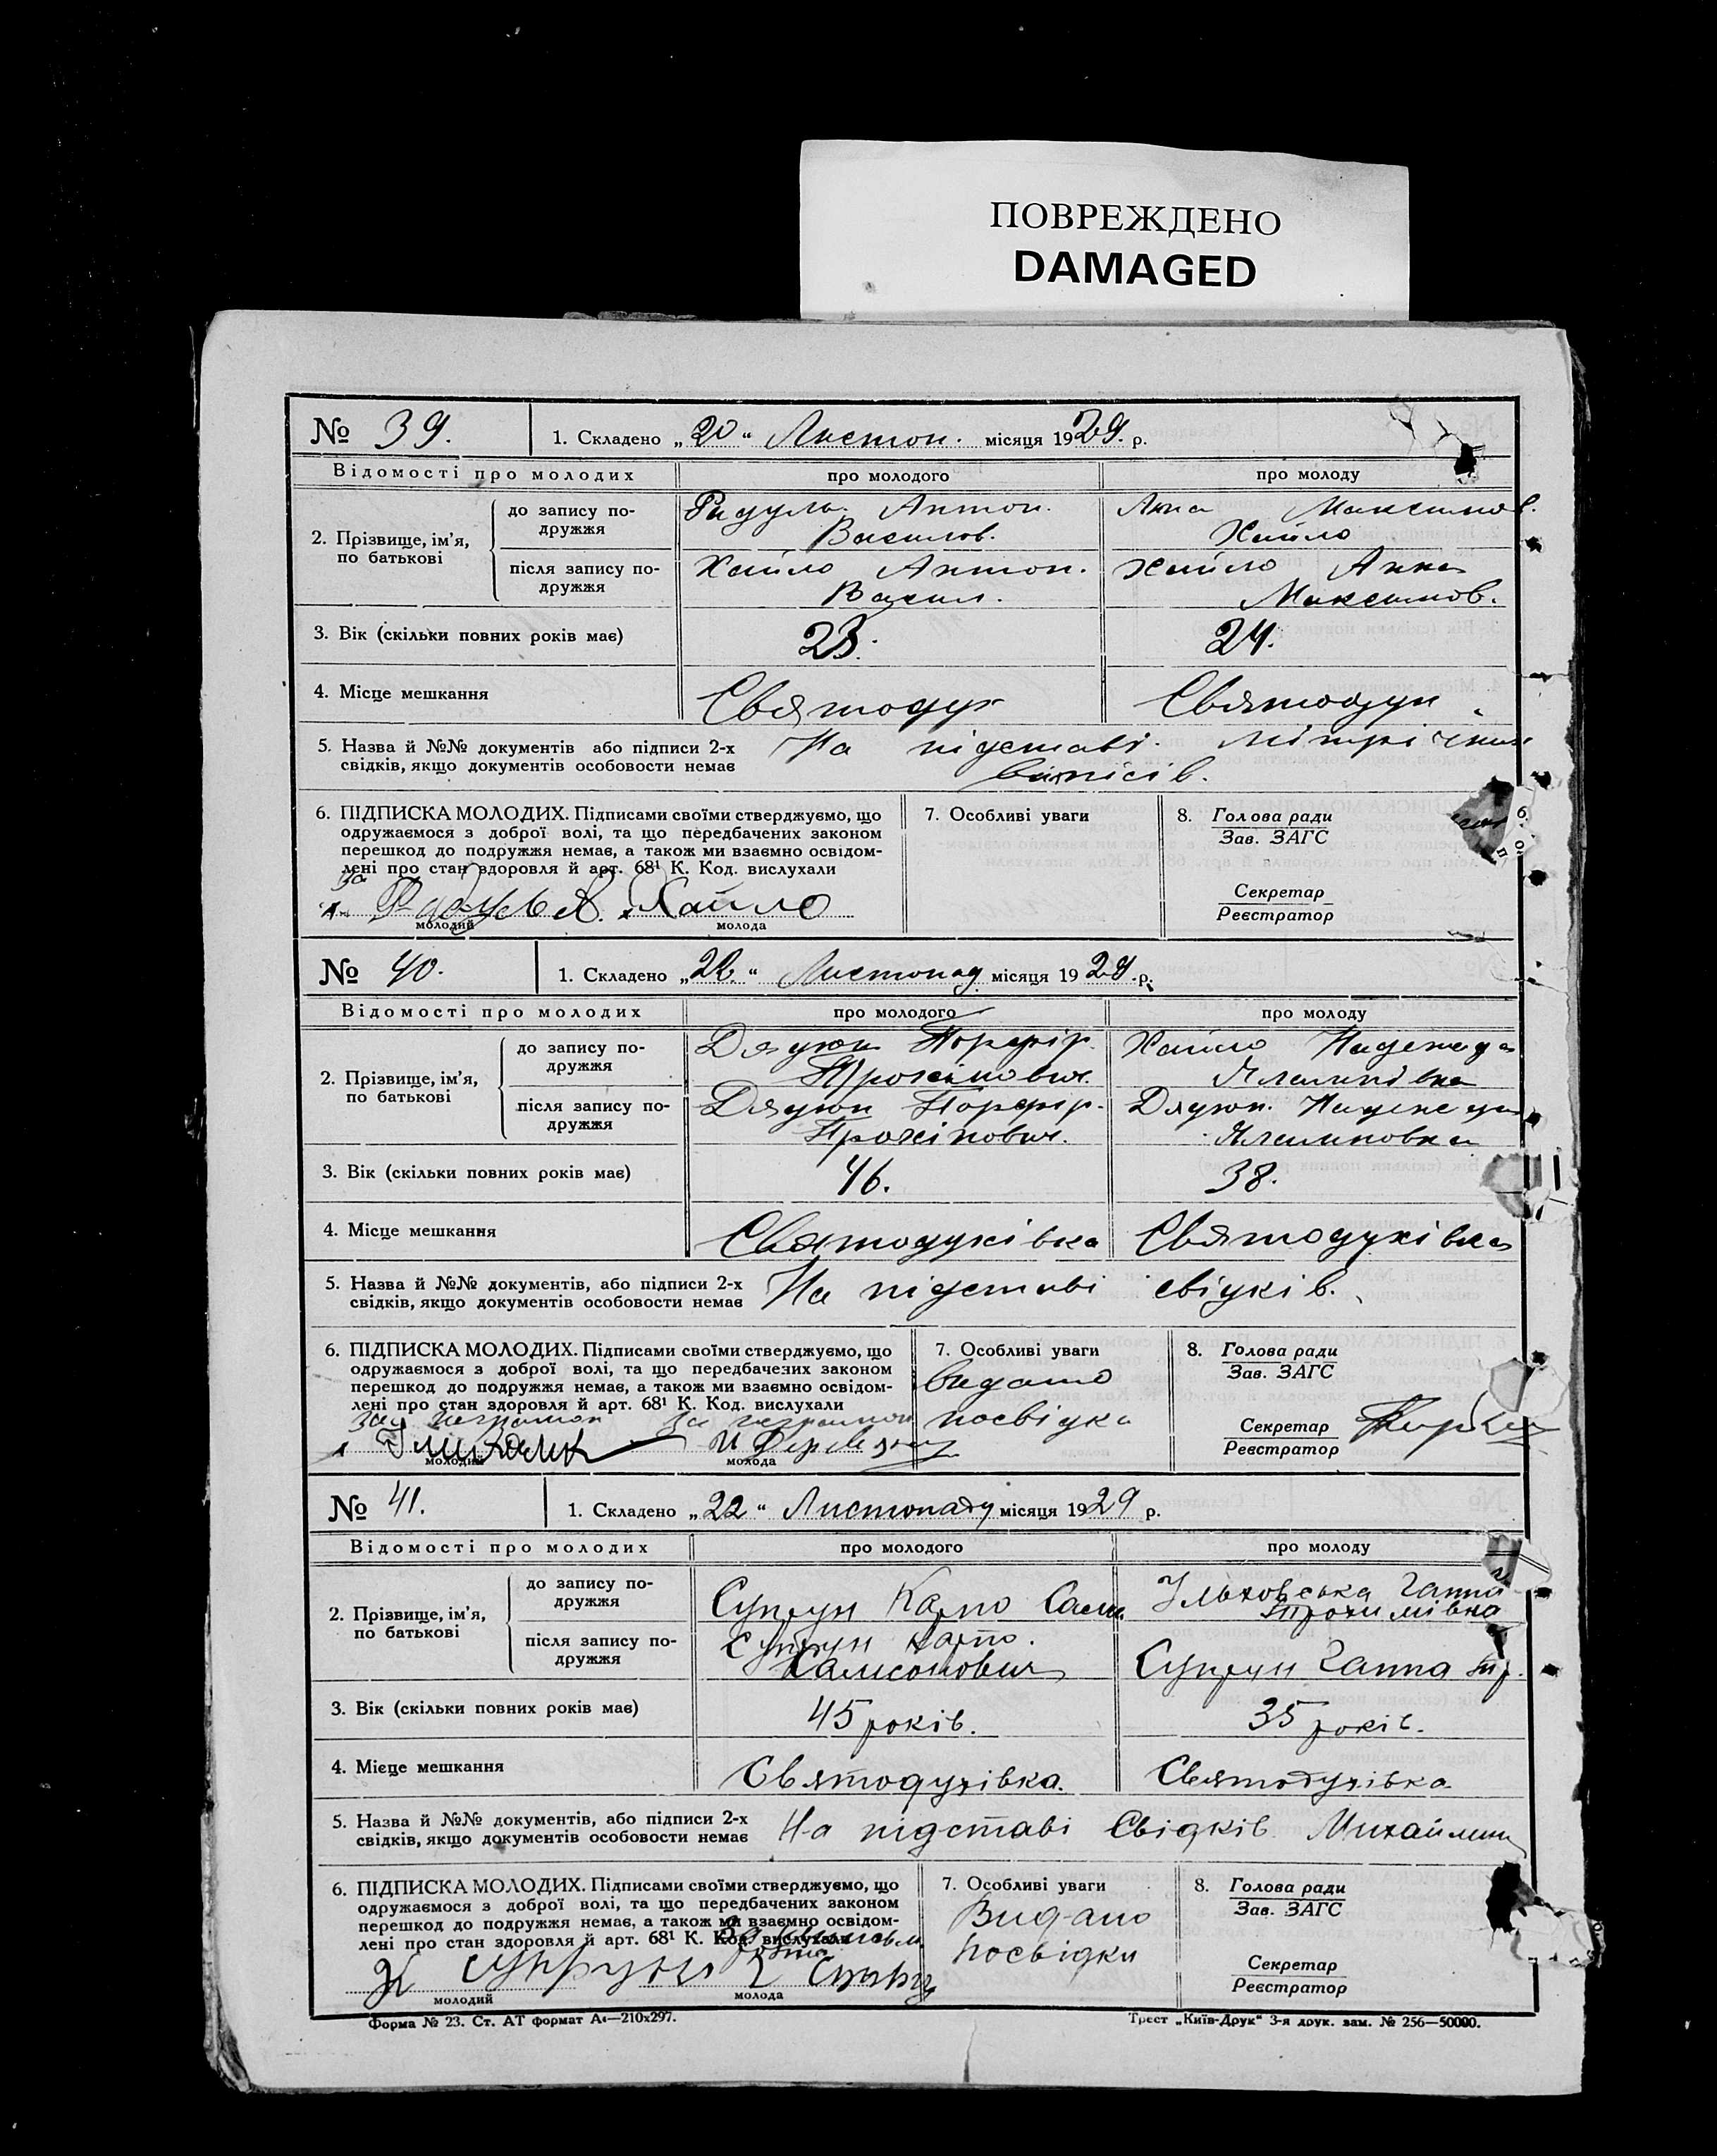 ПОВРЕЖДЕНО
DAMAGED
№ 39. 1. Складено „20“ Листоп. місяця 1929. р.
Відомості про молодих про молодого про молоду
2. Прізвище, ім'я, по батькові
до запису по-
дружжя
Радуль. Антон. Анна Максимов.
Василов. Хайло
після запису по-
дружжя
Хайло Антон. Хайло Анна
Васил. Максимов.
3. Вік (скільки повних років має) 23. 24.
4. Місце мешкання Святодух Святодух
5. Назва й №№ документів або підписи 2-х
свідків, якщо документів особовости немає
На підставі метричних
виписів.
6. ПІДПИСКА МОЛОДИХ. Підписами своїми стверджуємо, що
одружаємося з доброї волі, та що передбачених законом
перешкод до подружжя немає, а також ми взаємно освідом-
лені про стан здоровля й арт. 68¹ К. Код. вислухали
Радуль А. Хайло
молодий молода
7. Особливі уваги
8. Голова ради
Зав. ЗАГС
Секретар
Реєстратор
№ 40. 1. Складено „22.“ Листопад місяця 1929. р.
Відомості про молодих про молодого про молоду
2. Прізвище, ім'я, по батькові
до запису по-
дружжя
Дядюн Порфір. Хайло Надежда
після запису по-
дружжя
Дядюн Порфір. Дядюн. Надежда
3. Вік (скільки повних років має) 46. 38.
4. Місце мешкання Святодухівка Святодухівка
5. Назва й №№ документів, або підписи 2-х
свідків, якщо документів особовости немає
На підставі свідків.
6. ПІДПИСКА МОЛОДИХ. Підписами своїми стверджуємо, що
одружаємося з доброї волі, та що передбачезих законом
перешкод до подружжя немає, а також ми взаємно освідом-
лені про стан здоровля й арт. 68¹ К. Код. вислухали
за неграмот за неграмот
молодий молода
7. Особливі уваги
видано
посвідка
8. Голова ради
Зав. ЗАГС
Секретар
Реєстратор
№ 41. 1. Складено „22“ Листопаду місяця 1929 р.
Відомості про молодих про молодого про молоду
2. Прізвище, ім'я, по батькові
до запису по-
дружжя
Супрун Карпо Самс Ульховська Ганна
Трохимівна
після запису по-
дружжя
Супрун Карпо.
Самсонович Супрун Ганна Тр.
3. Вік (скільки повних років має) 45 років. 35 років.
4. Місце мешкання Святодухівка. Святодухівка
5. Назва й №№ документів, або підписи 2-х
свідків, якщо документів особовости немає
На підставі Свідків
6. ПІДПИСКА МОЛОДИХ. Підписами своїми стверджуємо, що
одружаємося з доброї волі, та що передбачених законом
перешкод до подружжя немає, а також ми взаємно освідом-
лені про стан здоровля й арт. 68¹ К. Код. вислухали
К Супрун
молодий молода
7. Особливі уваги
Видано
посвідки
8. Голова ради
Зав. ЗАГС
Секретар
Реєстратор
Форма № 23. Ст. АТ формат А4—210x297. Трест „Київ-Друк“ 3-я друк. зам. № 256—50000.